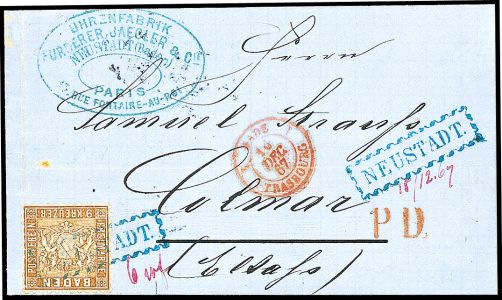 UHRENFABRIK
FURDERER, JAEGLER & CIE
NEUSTADT (Baden)
PARIS
RUE FONTAINE-AU-ROI
Herrn
Samuel Strauss
BADE
16
DEC
67
STRASBOURG
NEUSTADT.
18/12.67
Colmar
P.D.
(Elsass)
9. KREUZER
BADEN
ADT.